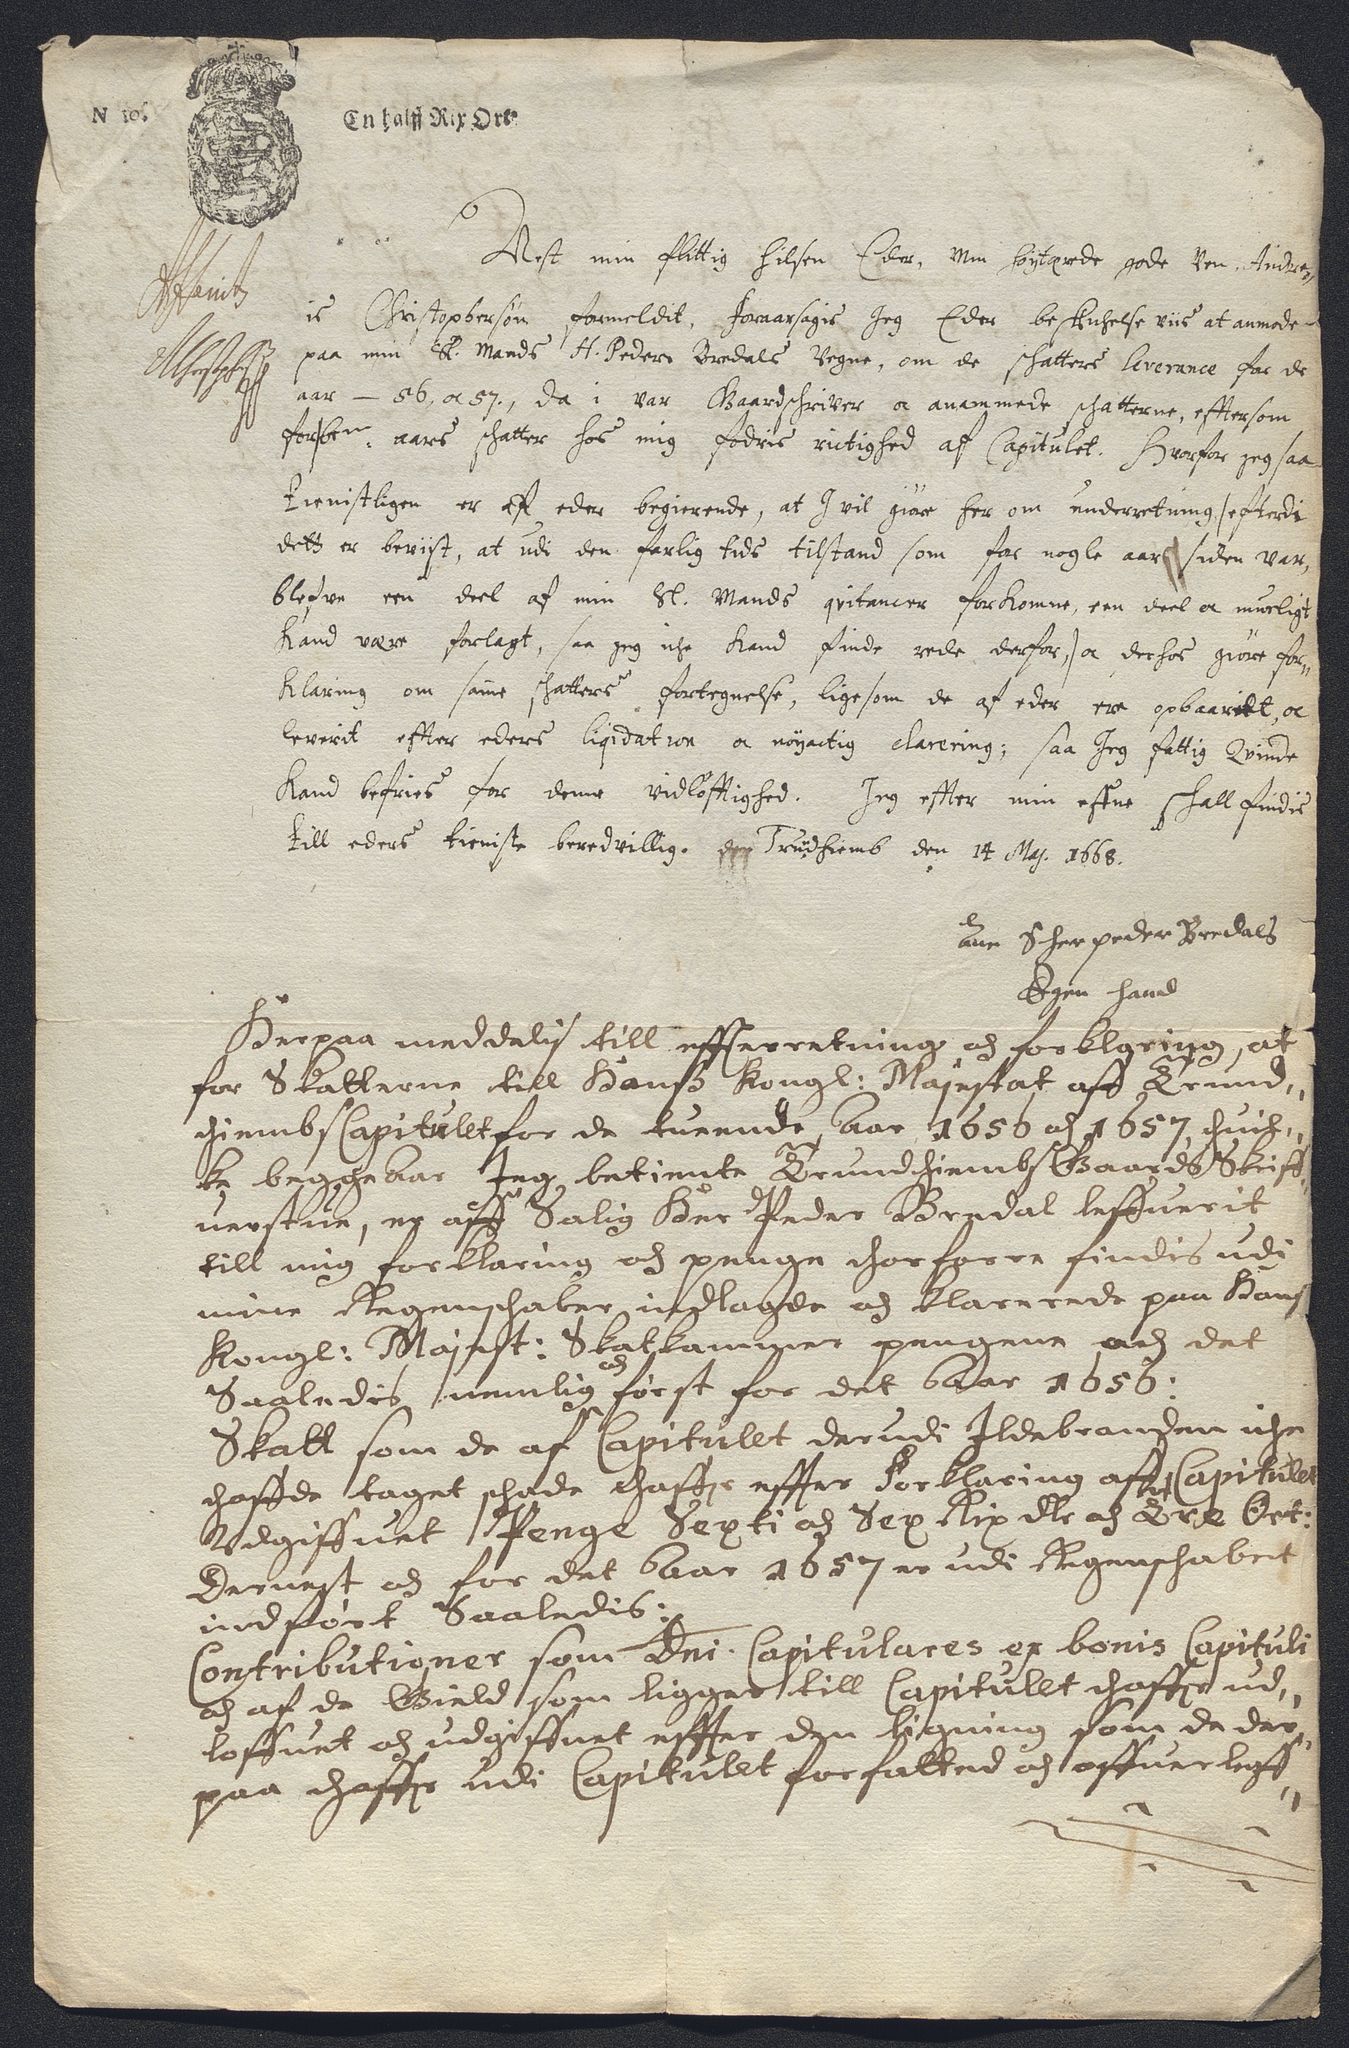 N 10.
En halff Rix Ort
Nest min flittig hilsen Eder, Min höytærede gode Ven, Andre-
is Christophersön formeldit, foraarsagis Jeg Eder beskuhelse viis at anmode
paa min Sl. Mands H. Peders Bredals Vegne, om de schatters leverance for de
aar - 56, oc 57., da i var Gaardschriver oc anammede schatterne, effter som
forschr: aars schatter hos mig fodris rictighed aff Capitulet. Hvorfor jeg saa
tienistligen er aff eder begierende, at J vil giöre her om underretning, (efterdi
dett er bevijst, at udi den farlig tids tilstand som for nogle aar siden var,
blefvn een deel af min Sl. Mands qvitancer forkomne, een deel oc mueligt
kand være forlagt, saa jeg iche kand finde rede derfor,) oc derhos giöre for-
klaring om samme schatters fortegnelse, ligesom de af eder ere opbaaritt, oc
leverit effter eders liqidation oc nöyactig clarering; saa Jeg fattig Qvinde
kand befries for denne vidlöfftighed. Jeg effter min effne schall findis
till eders tieniste beredvillig. Trudhiemb den 14 Maj. 1668.
Sl. her peder Bredals
Egen hand
Herpaa meddelis till effterretning och forklaring, at
for Skatterne till Hans Kongl: Majestat aff Trund-
hiembs Capitulet for de tuende Aar 1656 och 1657, huil-
ke begge Aar Jeg betiente Trundhiembs Gaards Skriff-
uerstue, er aff Salig Her Peder Bredal leffuerit
till mig forklaring och penge horforre findis udi
mine Regenschaber indlagde och klarerede paa Hans
Kongl: Majest: Skatkammer pengene och det
Saaledis nemlig och först for det Aar 1656:
Skatt som de af Capitulet derudi Ildebranden iche
haffde taget schade haffr effter Forklaring aff Capitulet
Udgiffuet Penge Sexti och Sex Rix dlr och Tre Ort:
Dernest och for det Aar 1657 er udi Regenschabet
indfört Saaledis:
Contributioner som Dni. Capitulares ex bonis Capituli
och af de Gield som ligger till Capitulet haffr ud-
loffuet och udgiffuet effter den ligning som de der-
paa haffr udi Capitulet forfatted och offuerleff-